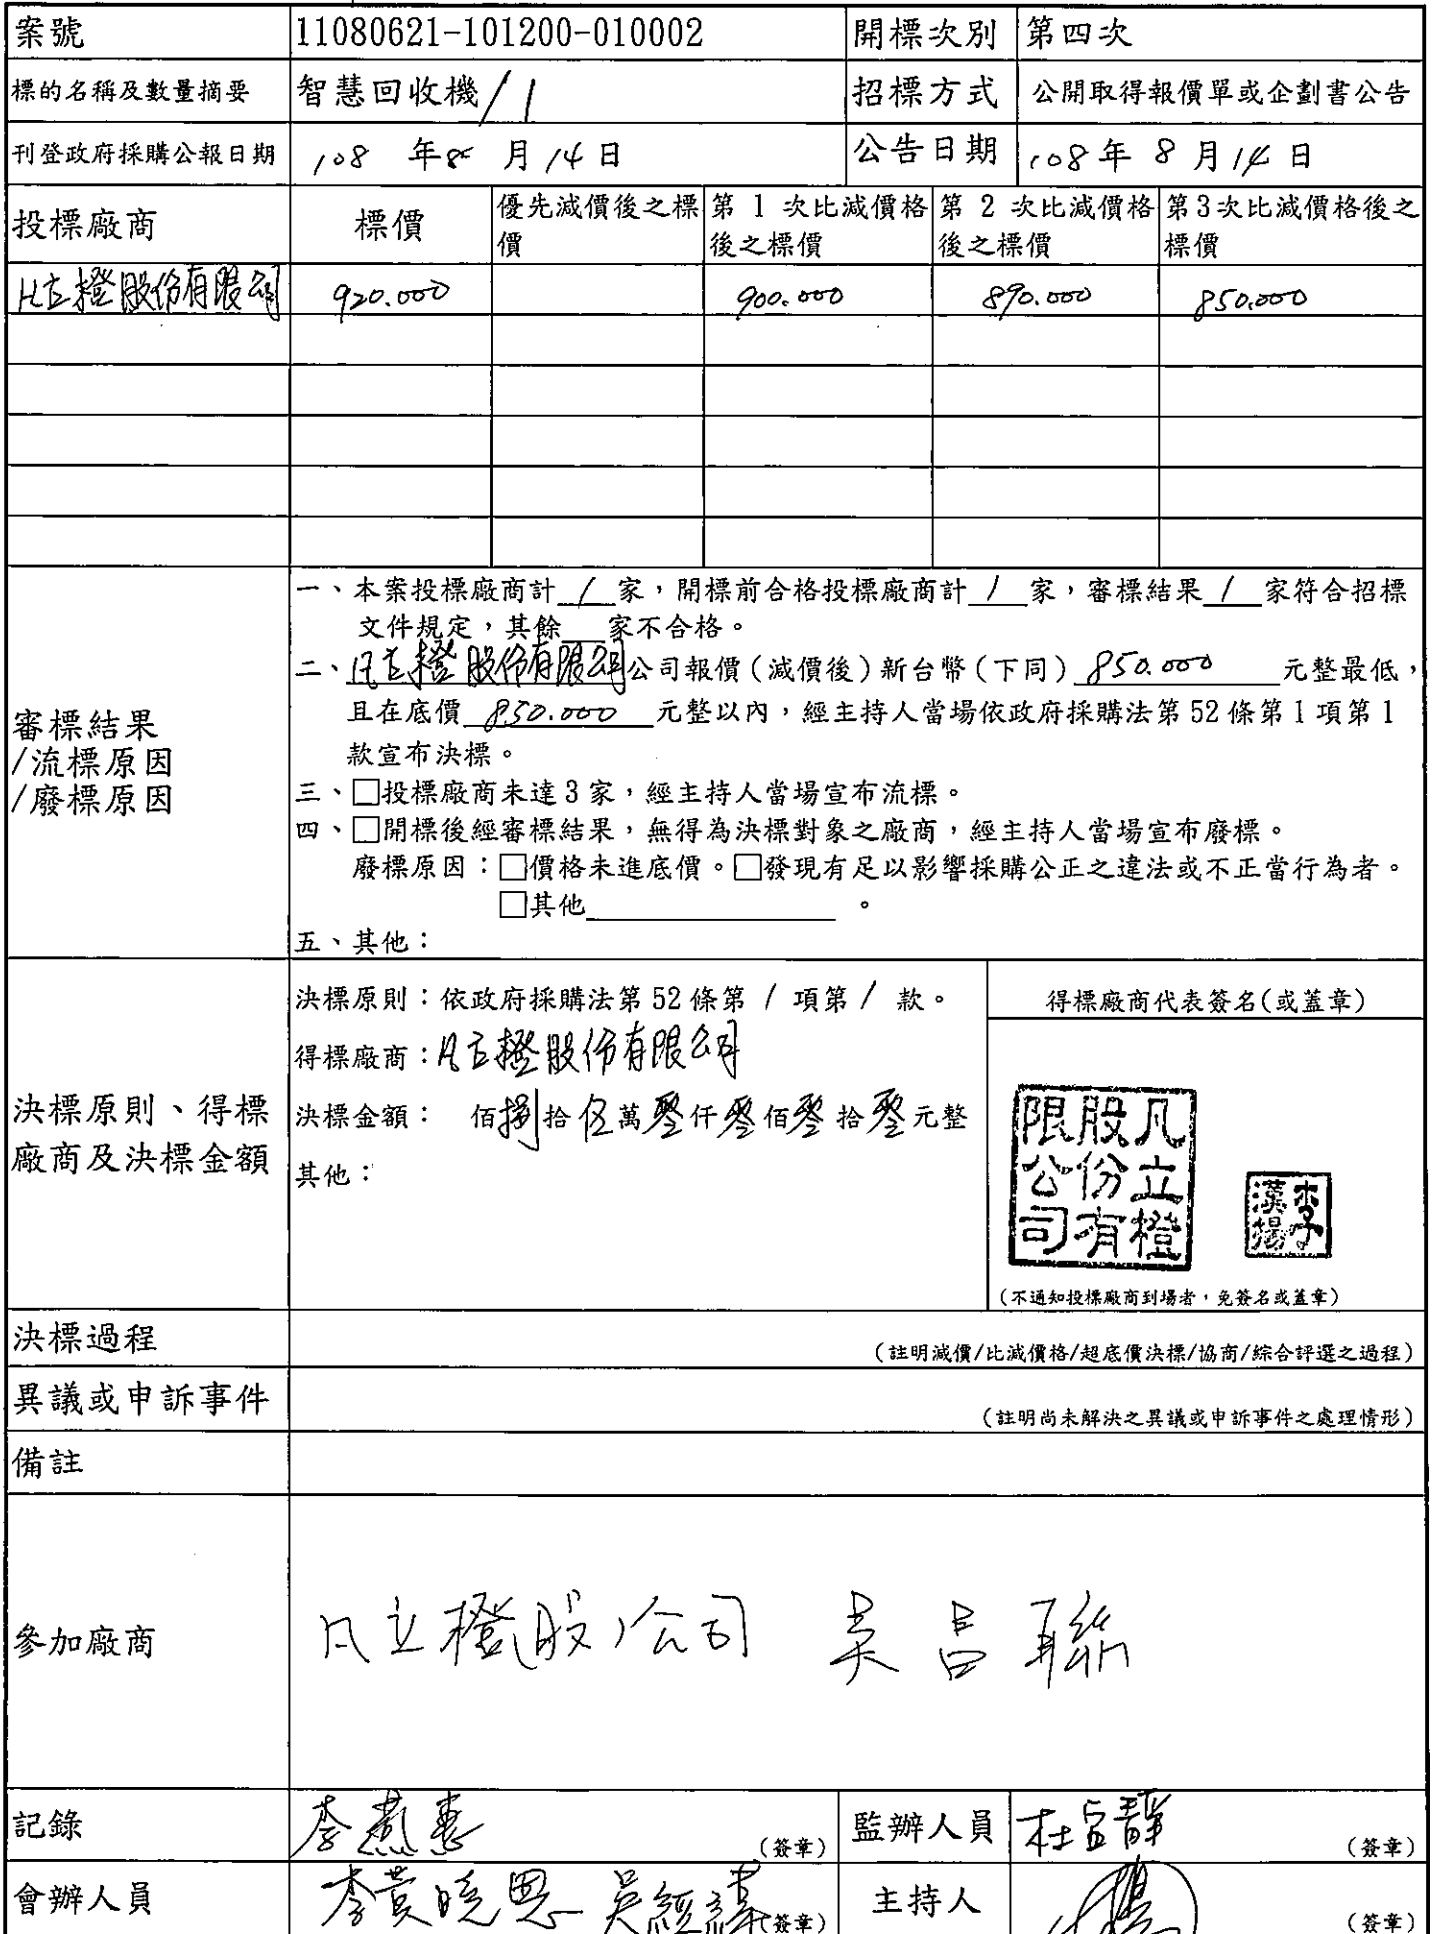 案號 11080621-101200-010002 開標次別 第四次
標的名稱及數量摘要 智慧回收機/1 招標方式 公開取得報價單或企劃書公告
刊登政府採購公報日期 108 年 8 月 14 日 公告日期 108 年 8 月 14 日
投標廠商 標價 優先減價後之標價 第 1 次比減價格後之標價 第 2 次比減價格後之標價 第3次比減價格後之標價
凡立橙股份有限公司 920.000 900.000 890.000 850.000
審標結果
/流標原因
/廢標原因
一、本案投標廠商計 1 家，開標前合格投標廠商計 1 家，審標結果 1 家符合招標
文件規定，其餘 家不合格。
二、凡立橙股份有限公司公司報價(減價後)新台幣(下同) 850.000 元整最低，
且在底價 850.000 元整以內，經主持人當場依政府採購法第 52 條第 1 項第 1
款宣布決標。
三、□投標廠商未達 3 家，經主持人當場宣布流標。
四、□開標後經審標結果，無得為決標對象之廠商，經主持人當場宣布廢標。
廢標原因：□價格未進底價。□發現有足以影響採購公正之違法或不正當行為者。
□其他 。
五、其他：
決標原則、得標
廠商及決標金額
決標原則：依政府採購法第 52 條第 1 項第 1 款。
得標廠商：凡立橙股份有限公司
決標金額： 佰捌拾伍萬零仟零佰零拾零元整
其他：
得標廠商代表簽名(或蓋章)
凡立橙
股份有
限公司
李漢揚
(不通知投標廠商到場者，免簽名或蓋章)
決標過程 (註明減價/比減價格/超底價決標/協商/綜合評選之過程)
異議或申訴事件 (註明尚未解決之異議或申訴事件之處理情形)
備註
參加廠商 凡立橙(股)公司 吳昌聯
記錄 (簽章) 監辦人員 (簽章)
會辦人員 (簽章) 主持人 (簽章)